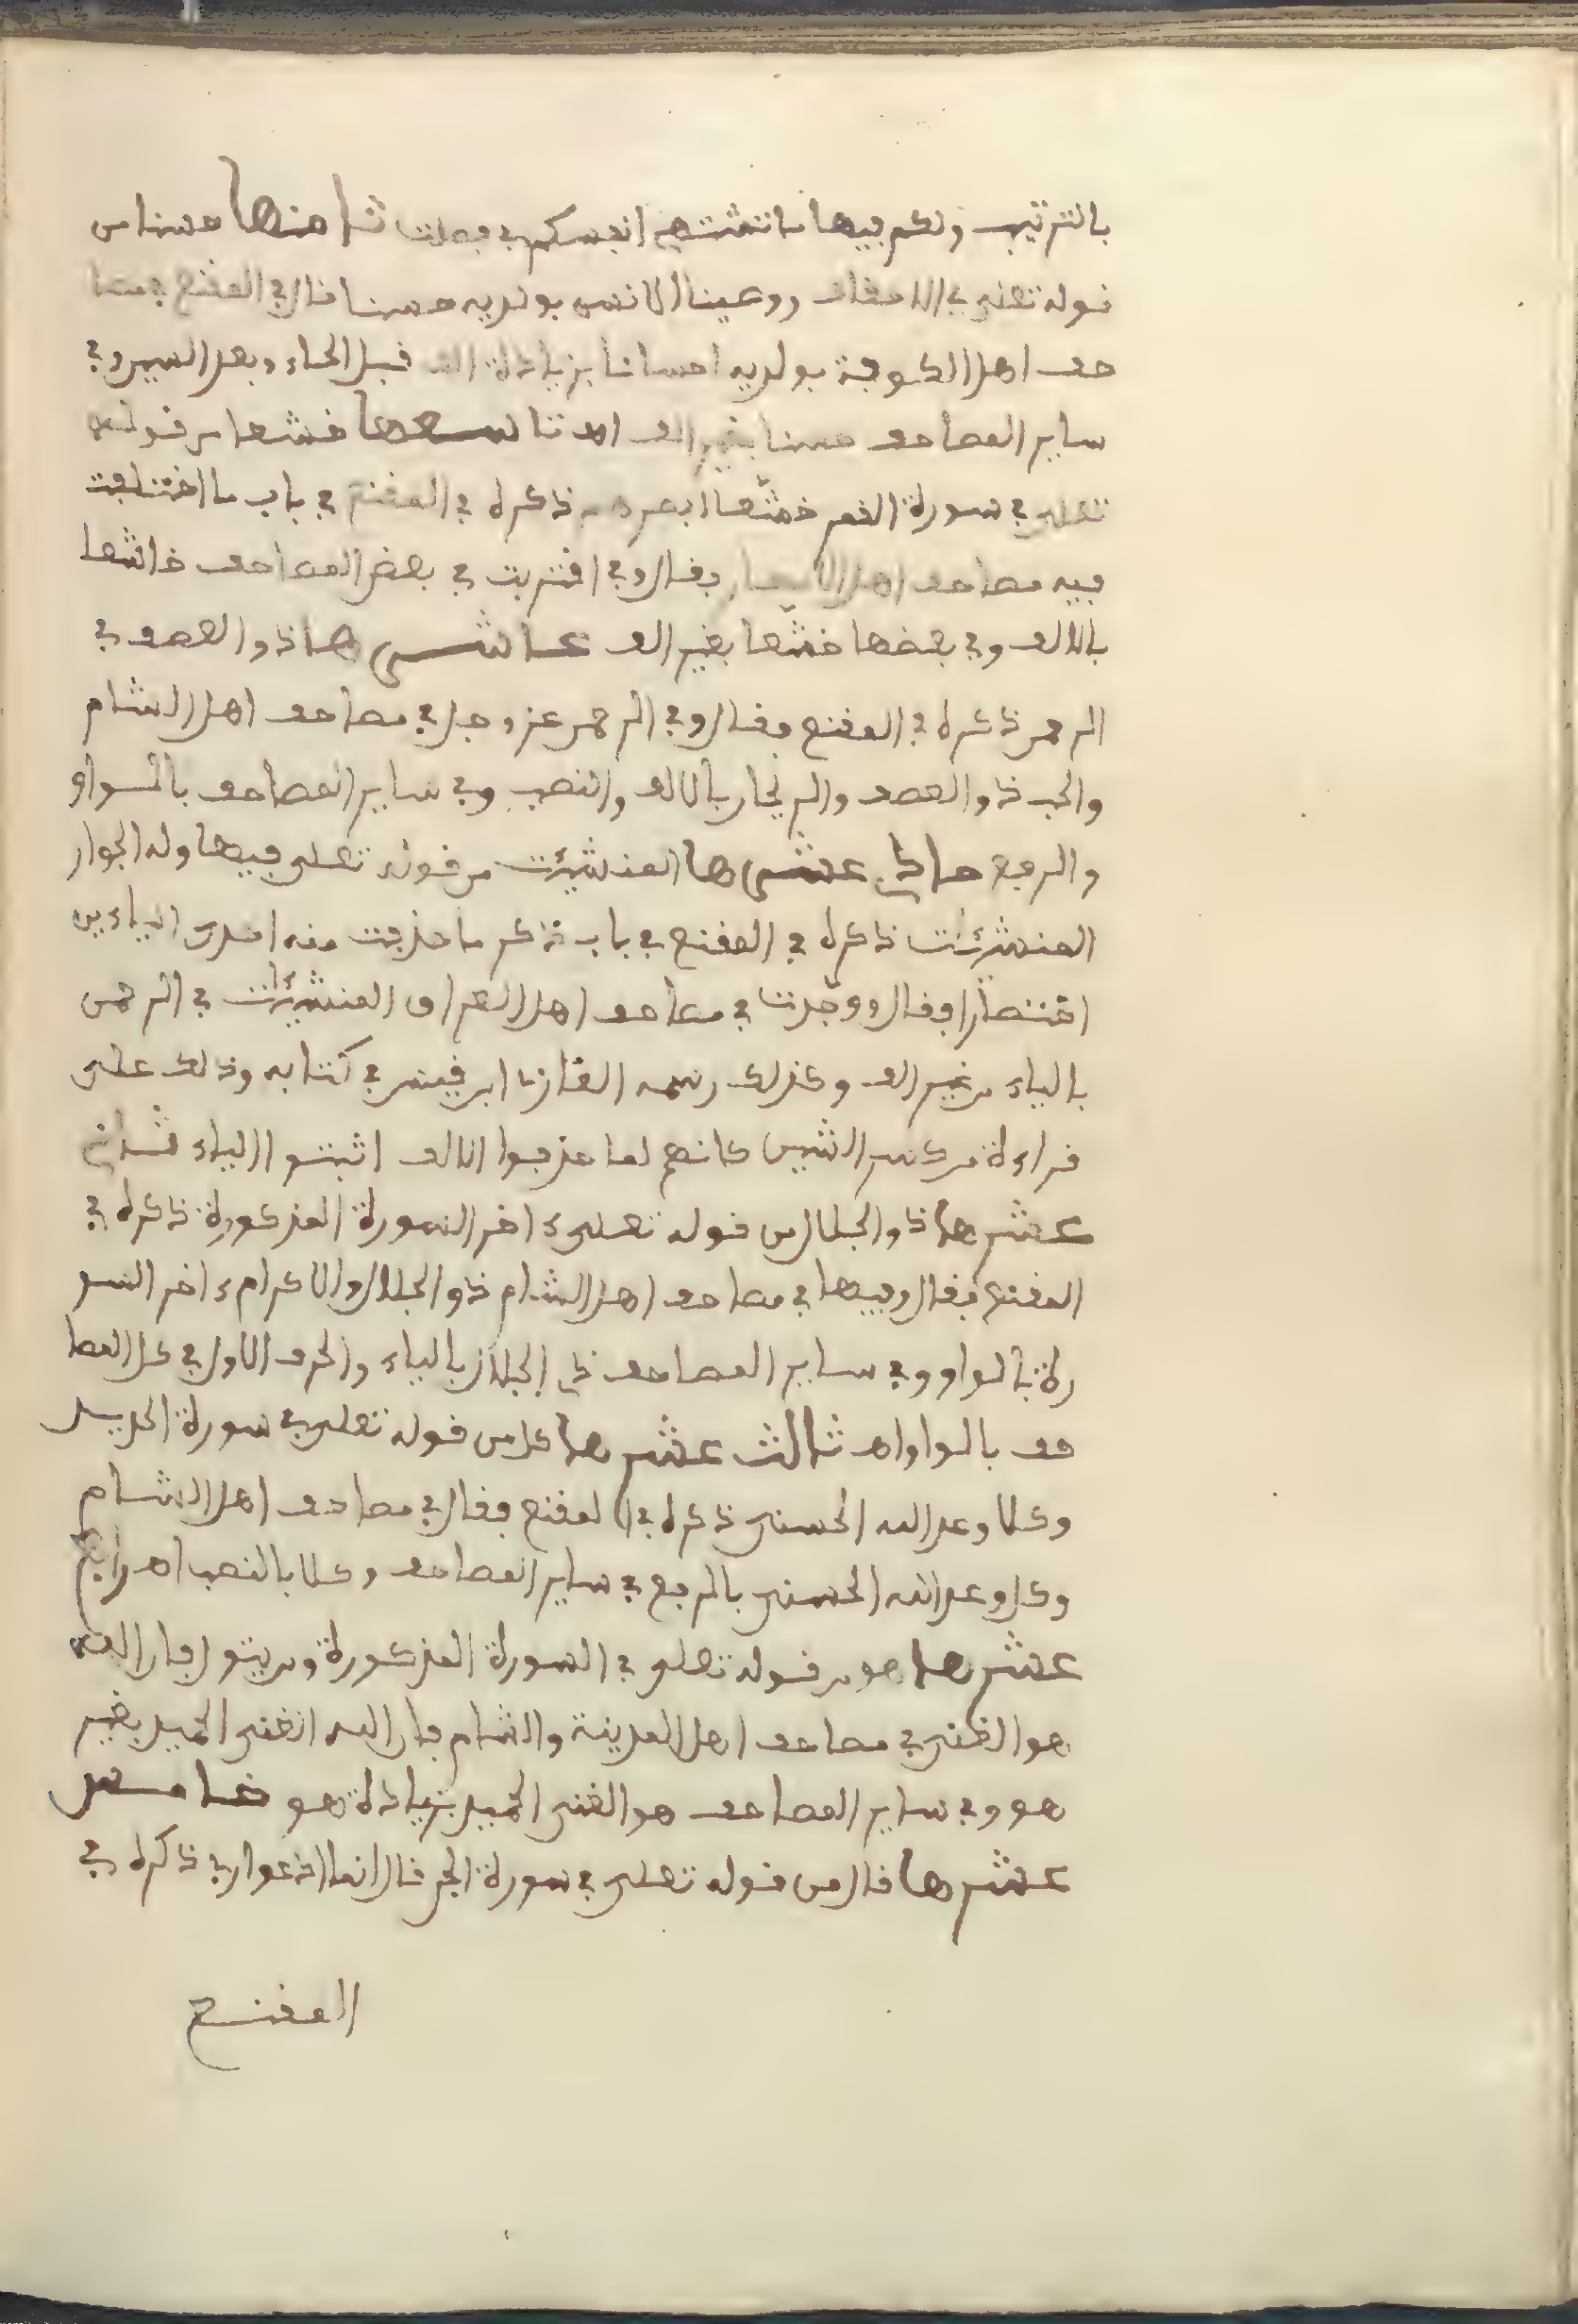 بالترتيب ولكم فيها ما تشتهي أنفسكم في فصلت ثامنها حسنا من
قوله تعلى في الاحقاف ووصينا الانسن بولديه حسنا قال في المقنع في مصا
حف اهل الكوفة بولديه احسانا بزيادة الف قبل الحاء وبعد السين وفي
ساير المصاحف حسنا بغير الف اهـ تاسعها خشعا من قوله
تعلى في سورة القمر خشّعا ابصرهم ذكره في المقنع في باب ما اختلفت
فيه مصاحف اهل الامصار فقال وفي اقتربت في بعض المصاحف خاشعا
بالالف وفي بعضها خشّعا بغير الف عاشرها ذو العصف في
الرحمن ذكره في المقنع فقال وفي الرحمن عز وجل في مصاحف اهل الشام
والحب ذو العصف والريحان بالالف والنصب وفي ساير المصاحف بالواو
والرفع حادي عشرها المنشيئت من قوله تعلى فيها وله الجوار
المنشئات ذكره في المقنع في باب ذكر ما حذفت منه احدى الياءين
اختصارا وقال ووجدت في مصاحف اهل العراق المنشيئت في الرحمن
بالياء من غير الف وكذلك رسمه الغازي ابن قيس في كتابه وذلك على
قراءة من كسر الشين كانهم لما حذفوا الالف اثبتوا الياء ثاني
عشرها ذو الجلال من قوله تعلى ءاخر السورة المذكورة ذكره في
المقنع فقال وفيها في مصاحف اهل الشام ذو الجلال والاكرام ءاخر السو
رة بالواو وفي ساير المصاحف ذي الجلال بالياء والحرف الاول في كل المصا
حف بالواو اهـ ثالث عشرها كلا من قوله تعلى في سورة الحديد
وكلا وعد الله الحسنى ذكره في المقنع فقال في مصاحف اهل الشام
وكل وعد الله الحسنى بالرفع في ساير المصاحف وكلا بالنصب اهـ رابع
عشرها هو من قوله تعلى في السورة المذكورة ومن يتول فان الله
هو الغني في مصاحف اهل المدينة والشام فان الله الغني الحميد بغير
هو وفي ساير المصاحف هو الغني الحميد بزيادة هو خامس
عشرها قال من قوله تعلى في سورة الجن قال انما ادعوا ربي ذكره في
المقنع